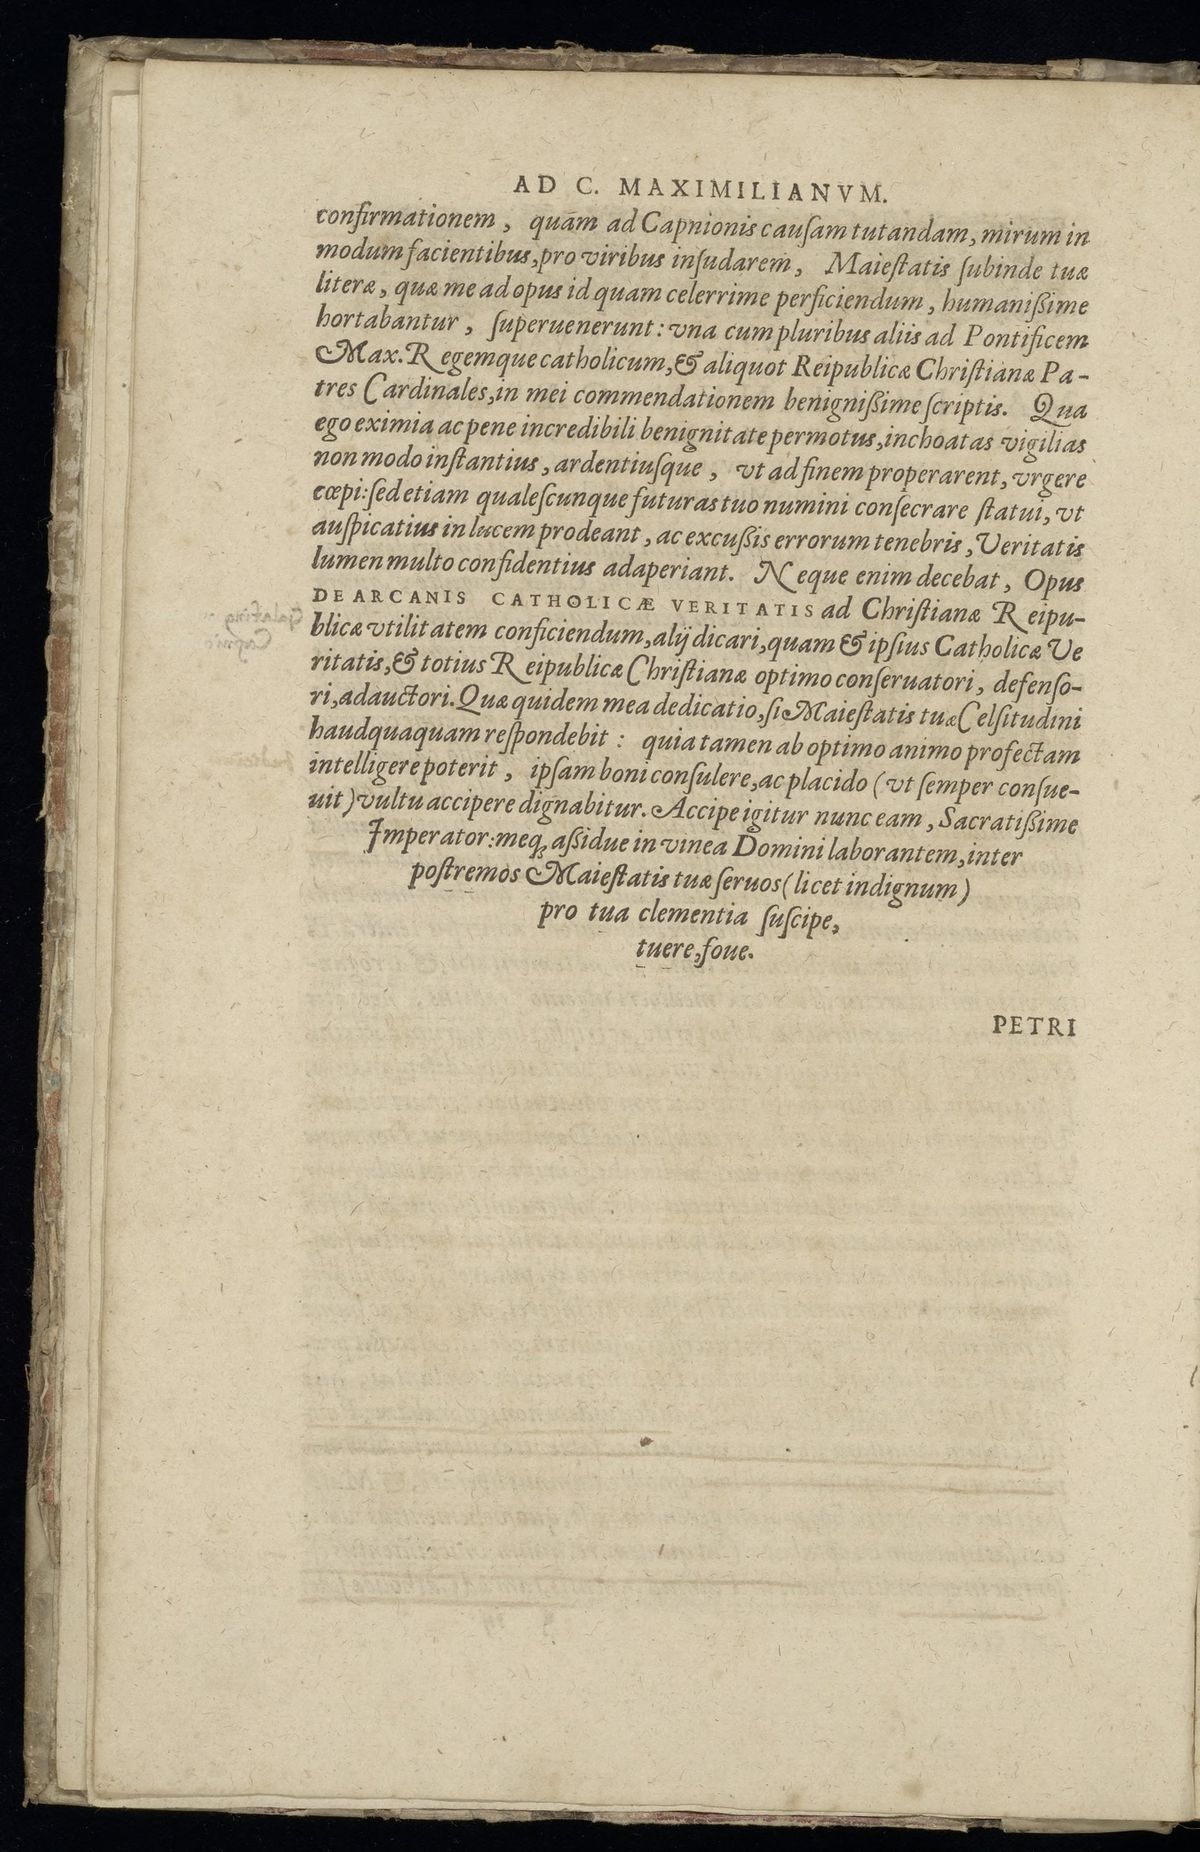 AD C. MAXIMILIANVM.
confirmationem, quām ad Capnionis cauſam tutandam, mirum in
modum facientibus, pro viribus inſudarem, Maieſtatis ſubinde tuæ
literæ, quæ me ad opus id quam celerrime perficiendum, humanißime
hortabantur, ſuperuenerunt: vna cum pluribus aliis ad Pontificem
Max. Regemque catholicum, & aliquot Reipublicæ Chriſtianæ Pa-
tres Cardinales, in mei commendationem benignißime ſcriptis. Qua
ego eximia ac pene incredibili benignitate permotus, inchoatas vigilias
non modo inſtantius, ardentiuſque, vt ad finem properarent, vrgere
cœpi: ſed etiam qualeſcunque futuras tuo numini conſecrare ſtatui, vt
auſpicatius in lucem prodeant, ac excußis errorum tenebris, Veritatis
lumen multo confidentius adaperiant. Neque enim decebat, Opus
DE ARCANIS CATHOLICÆ VERITATIS ad Chriſtianæ Reipu-
blicæ vtilitatem conficiendum, alij dicari, quam & ipſius Catholicæ Ve
ritatis, & totius Reipublicæ Chriſtianæ optimo conſeruatori, defenſo-
ri, adauctori. Quæ quidem mea dedicatio, ſi Maieſtatis tuæ Celſitudini
haudquaquam reſpondebit: quia tamen ab optimo animo profectam
intelligere poterit, ipſam boni conſulere, ac placido (vt ſemper conſue-
uit) vultu accipere dignabitur. Accipe igitur nunc eam, Sacratißime
Imperator: meq́ꝫ aßidue in vinea Domini laborantem, inter
poſtremos Maieſtatis tuæ ſeruos (licet indignum)
pro tua clementia ſuſcipe,
tuere, foue.
PETRI